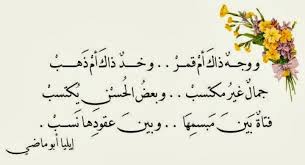 ووجهٌ ذاكَ أم قمرْ .. وخدٌ ذاكَ أم ذهبْ
جمالٌ غيرُ مكتسبْ .. وبعضُ الحُسنِ يكتسبْ
فتاةٌ بينَ مبسمِها .. وبينَ عقودِها نَسبْ .
إيليا أبو ماضي